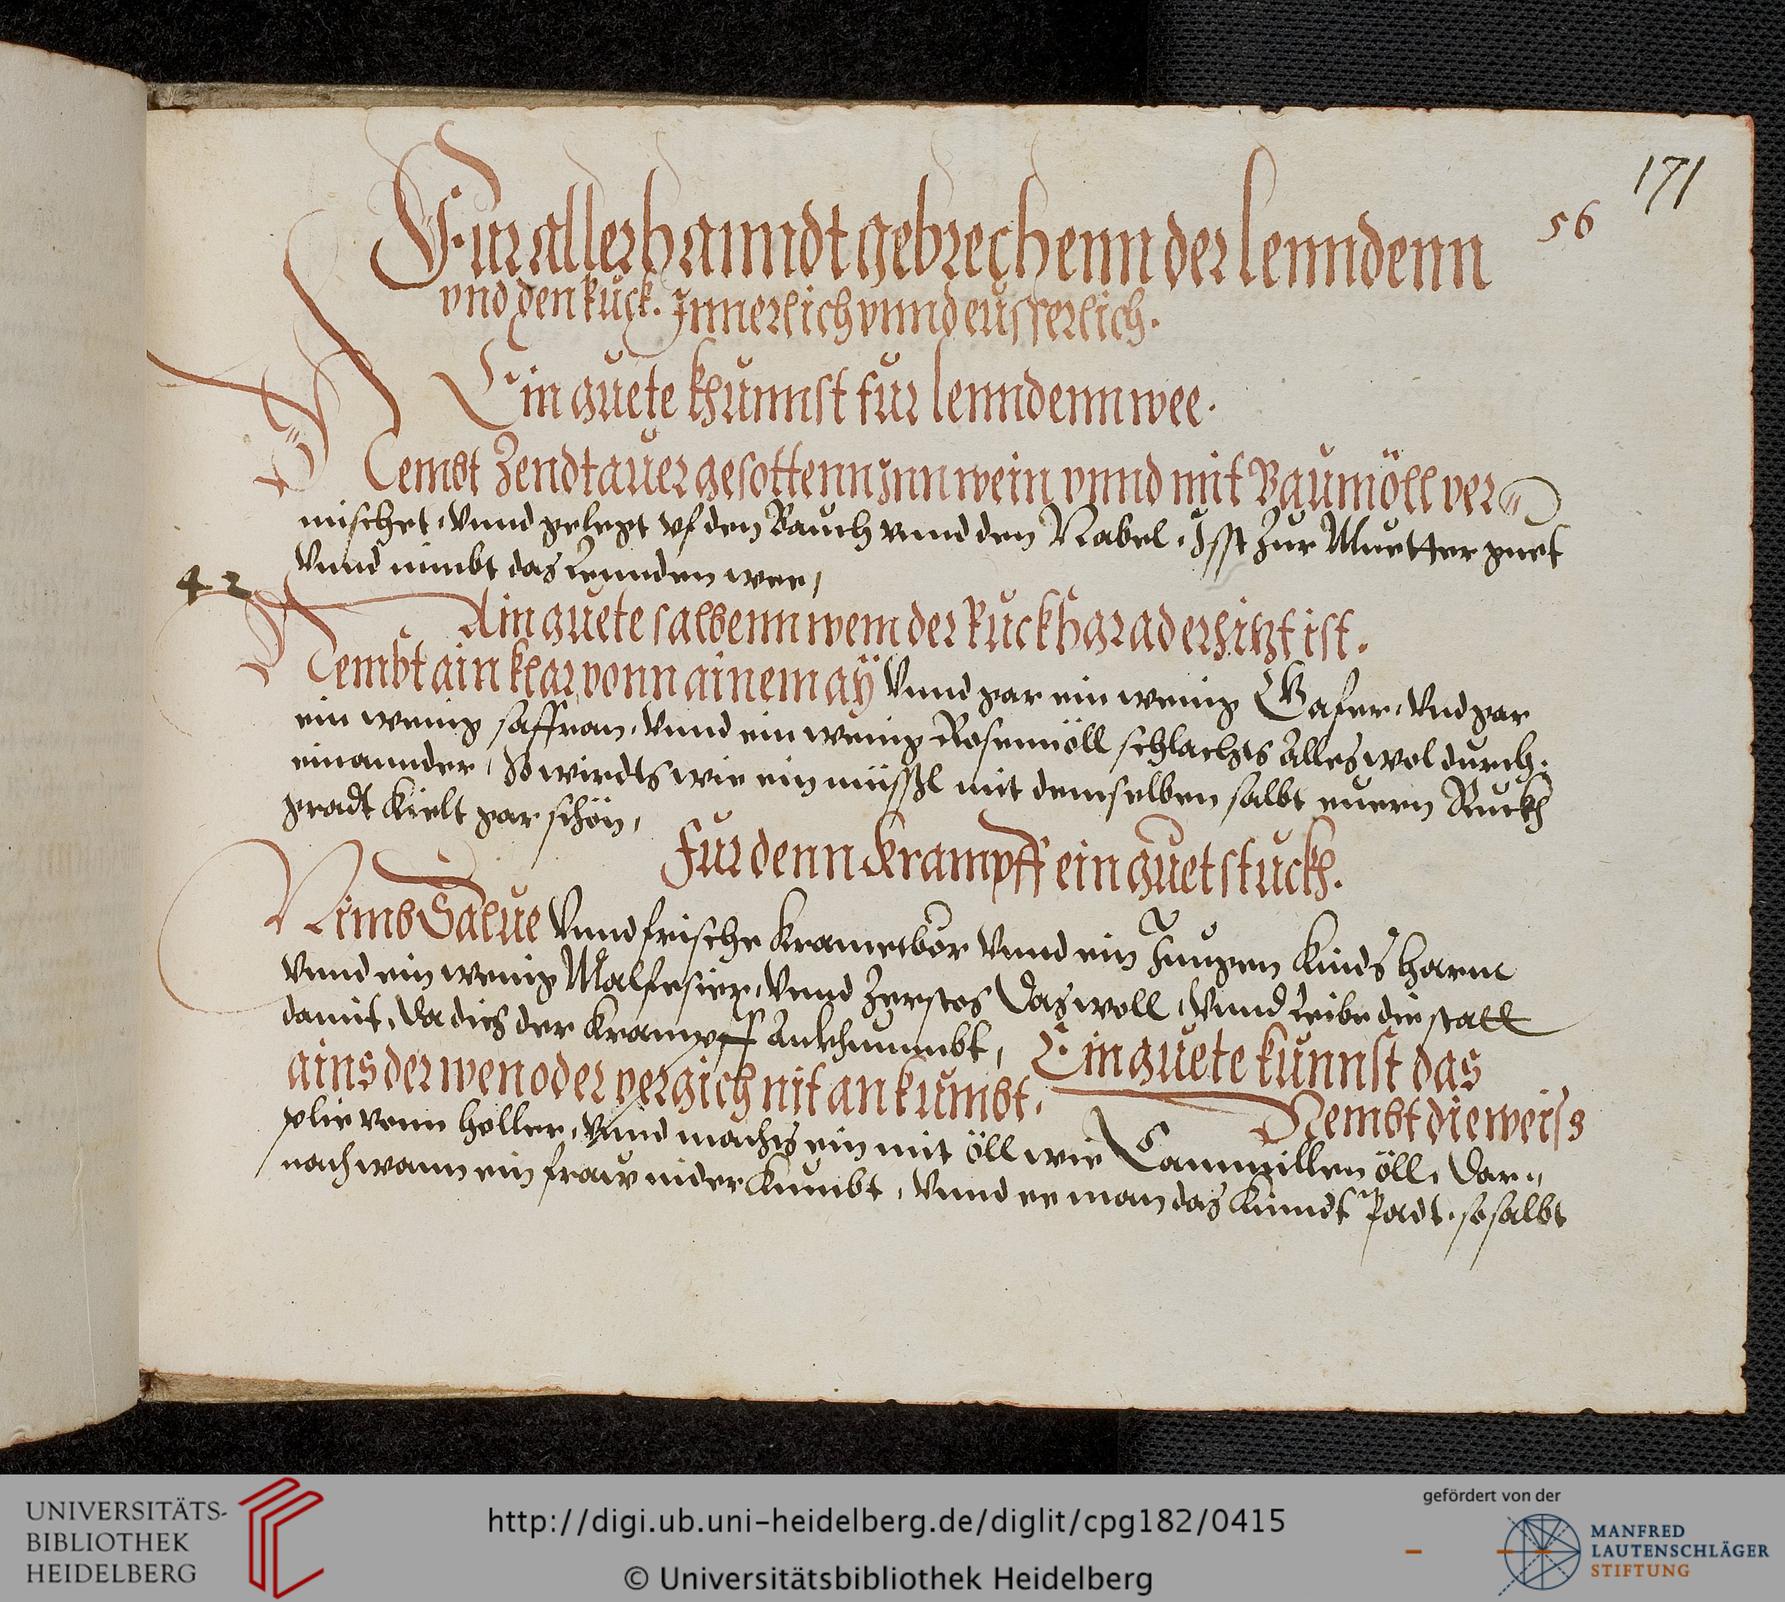 171
56
Fur allerhanndt gebrechenn der lenndenn
vnd den ruck. Innerlich vnnd eusserlich.
Ein guete khunnst fur lenndenn wee.
Nembt Zendtauer gesottenn Inn wein vnnd mit Baumöll ver=
mischet, Vnnd gelegt vf den Bauch vnnd den Nabel, Isst Zur Muetter guet
Vnnd nimbt das Lennden wee,
42
Ain guete salbenn wem der Ruckhgrad erhitzt ist.
Nembt ain klar vonn ainem aÿ Vnnd gar ein wenig Gafer, Vnd gar
ein wenig saffran, Vnnd ein wenig Rosennöll schlachts Alles wol durch.
einannder, So wirdts wie ein müsßl mit demselben salbt euern Ruckh
gradt kielt gar schön,
Fur denn Krampff ein guet stuckh.
Nimb Salue Vnnd frische Krametbör Vnnd ein Jungen Kinds harm
Vnnd ein wenig Malfesier, Vnnd Zerstos das woll, Vnnd Reibe die statt
damit, Da dich der Krampff Ankhummbt, Ein guete kunnst das
ains der wen oder vergich nit ankumbt.
Nembt die weiss
plie vonn holler, Vnnd machts ein mit öll wie Cammillen öll, Dar=
nach wann ein fraw nider Kumbt, Vnnd ee man das Kinndt Padt, so salbt
UNIVERSITÄTS-
BIBLIOTHEK
HEIDELBERG
http://digi.ub.uni-heidelberg.de/diglit/cpg182/0415
© Universitätsbibliothek Heidelberg
gefördert von der
MANFRED
LAUTENSCHLÄGER
STIFTUNG